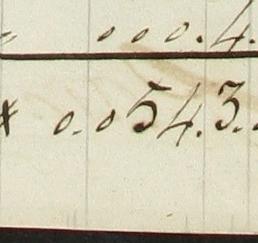 0 0 0. 4.
0. 0 5 4. 3.